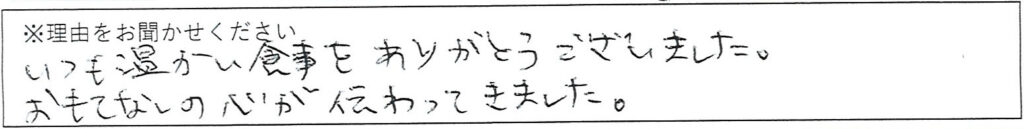 ※理由をお聞かせください
いつも温かい食事をありがとうございました。
おもてなしの心が伝わってきました。